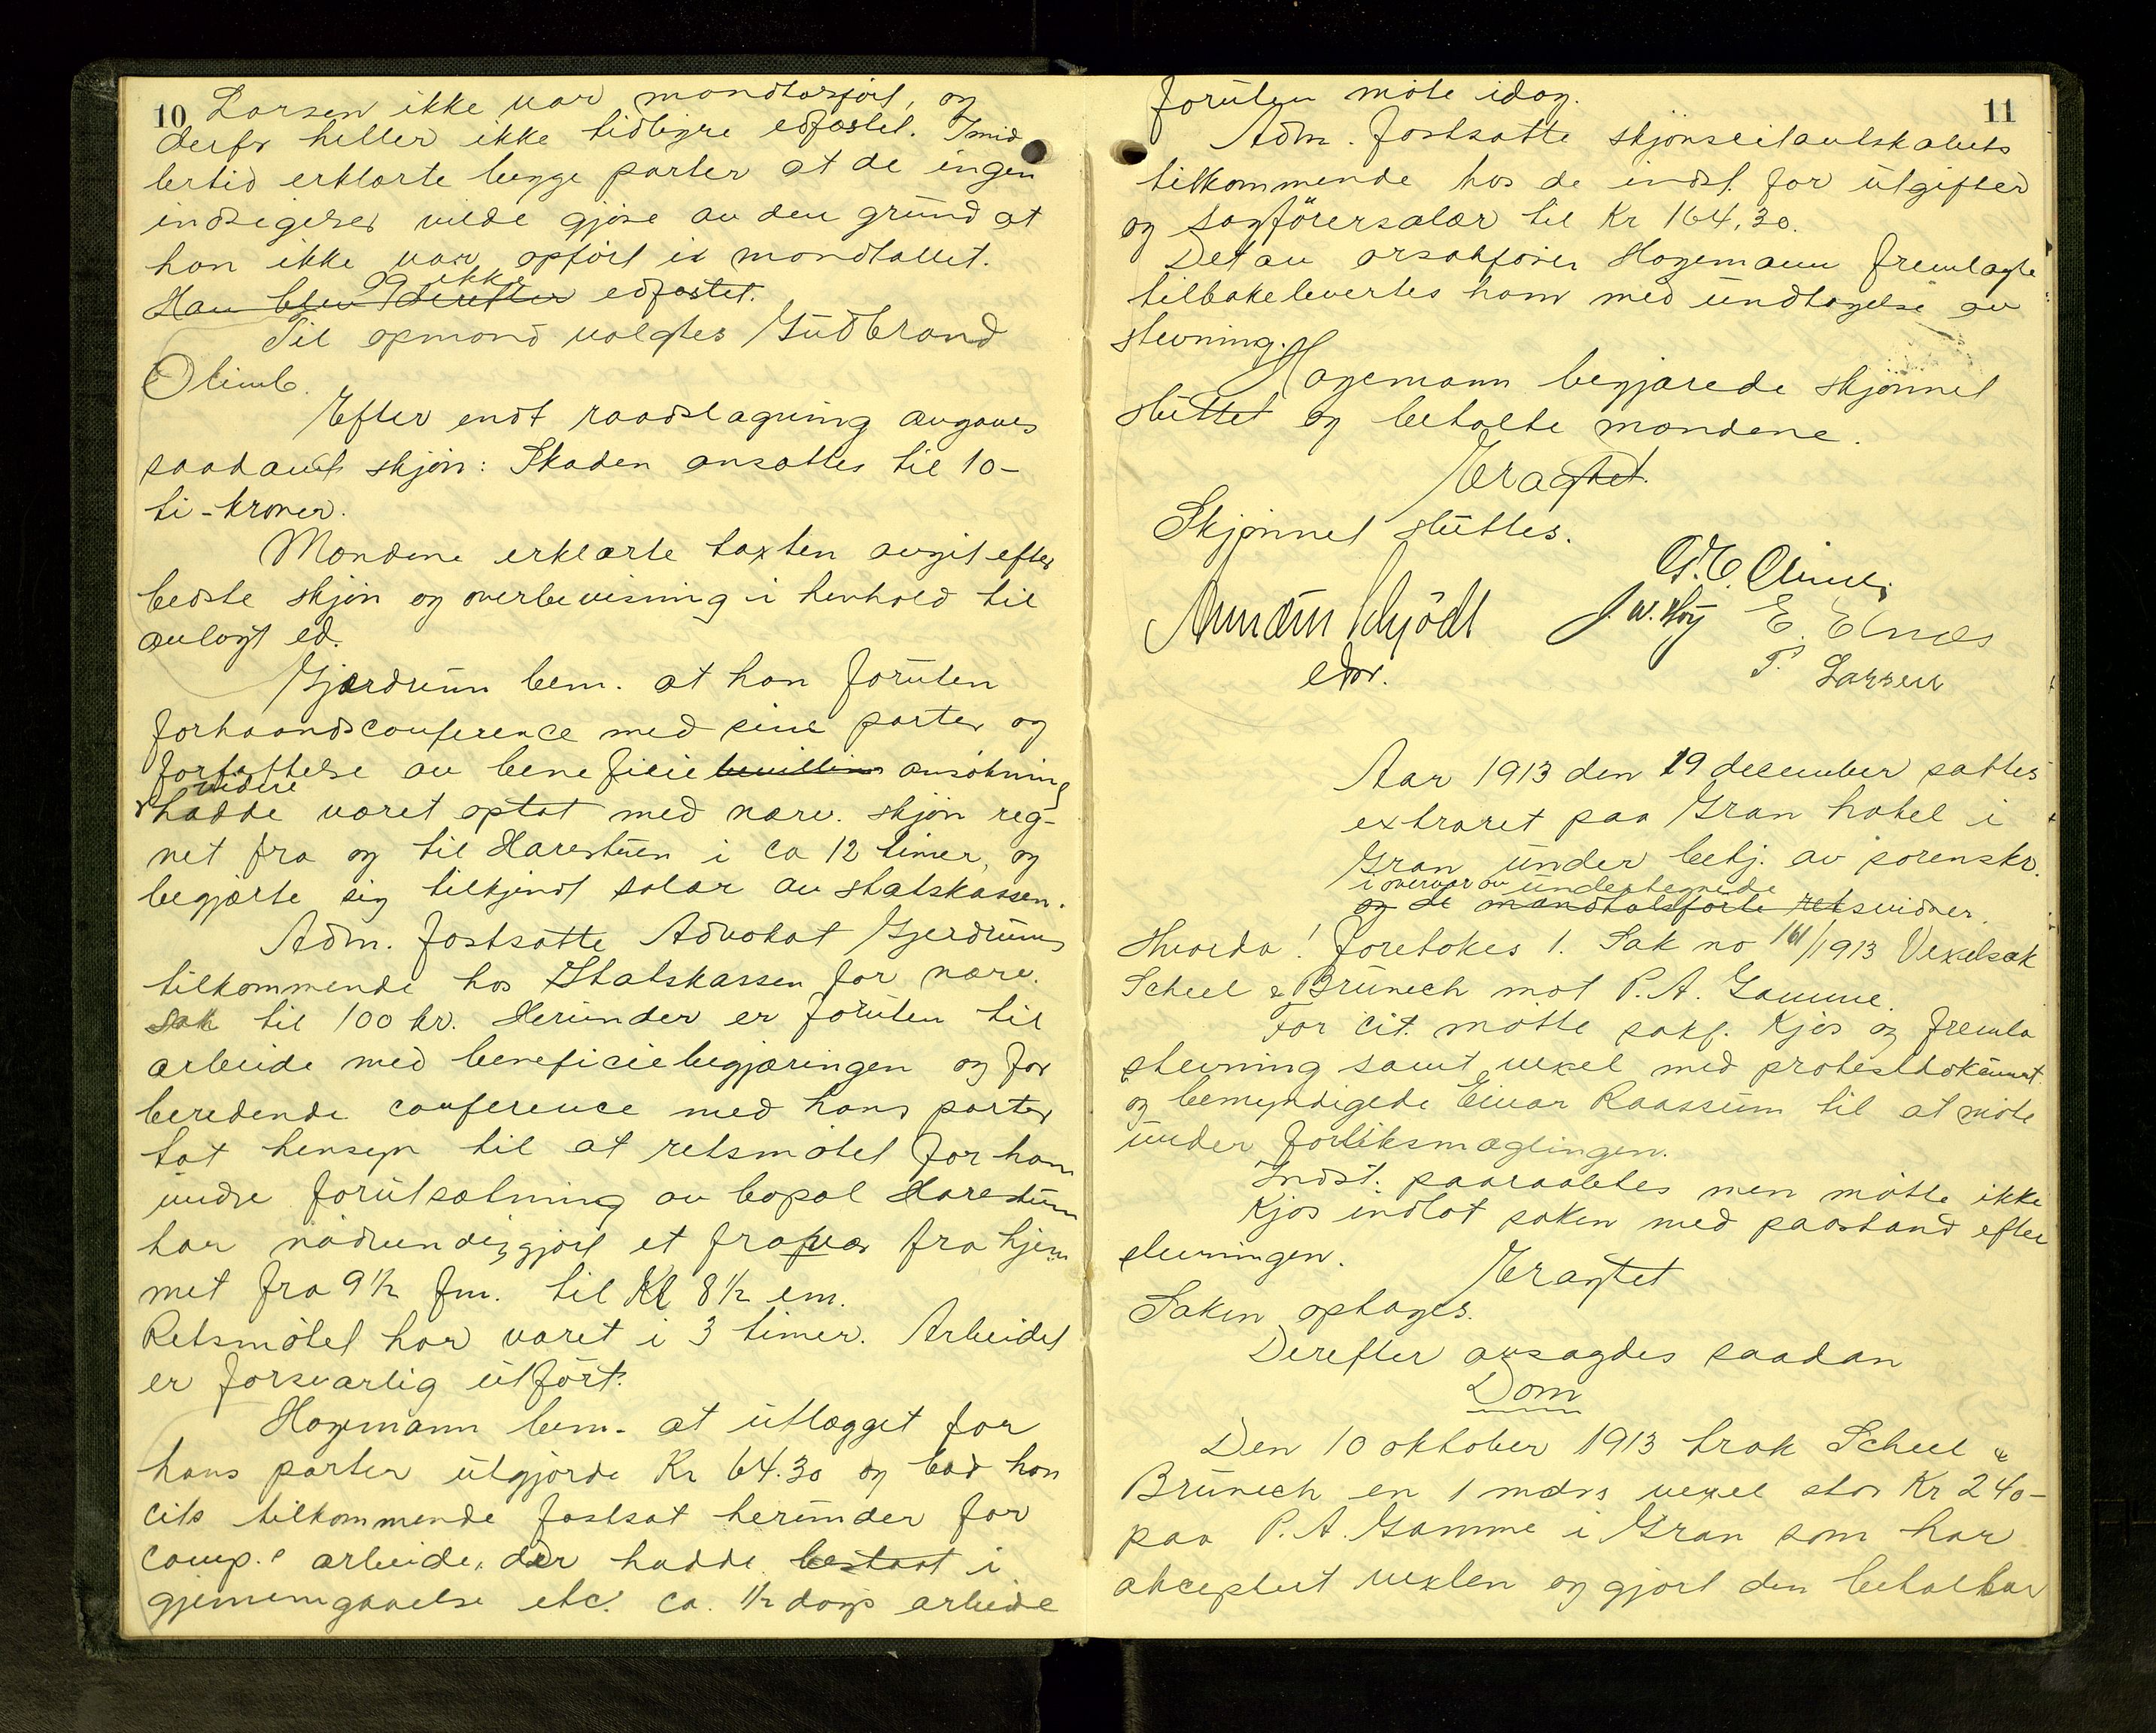 10
Larsen ikke var mandtasjört, og
derfor heller ikke tidligere edfæstet. Imid
lertid erklærte begge parter at de ingen
indsigelser vilde gjöre av den grund at
han ikke var opfört i mandtallet.
og ikke
Han blev derefter edfæstet.
Til opmand valgtes Gudbrand
Olimb.
Efter endt raadslagning avgaves
saadant skjön: Skaden ansattes til 10-
ti-kroner.
Mændene erklærte taxten avgit efter
bedste skjön og overbevisning i henhold til
avlagt ed.
Gjerdrum bem. at han foruten
forhaandsconference med sine parter og
forfattelse av beneficie bevilling ansökning
videre
hadde været optat med nærv. skjön reg-
net fra og til Harestuen i ca 12 timer, og
begjærte sig tilkjendt salær av statskassen.
Adm. fastsatte Advokat Gjerdrums
tilkommende hos Statskassen for nærv.
sak til 100 kr. Herunder er foruten til
arbeide med beneficiebegjæringen og for
beredende conference med hans parter
tat hensyn til at retsmötet for ham
under forutsætning av bopæl Harestuen
har nödvendiggjort et fravær fra hjem
met fra 9 1/2 fm. til Kl 8 1/2 em.
Retsmötet har varet i 3 timer. Arbeidet
er forsvarlig utfört.
Hagemann bem. at utlægget for
hans parter utgjorde Kr 64.30 og bad han
cits tilkommende fastsat herunder for
comp.s arbeide, der hadde bestaat i
gjennemgaaelse etc. ca. 1/2 dags arbeide
11
foruten möte idag.
Adm. fastsatte skjönscitantskabets
tilkommende hos de indst. for utgifter
og sagförersalær til Kr 164,30.
Det av orsakförer Hagemann fremlagte
tilbakelevertes ham med undtagelse av
stevning.
Hagemann begjærede skjönnet
sluttet og betalte mændene.
Eragtet.
Skjönnet sluttes.
G. O. Olimb.
J. W. Høy E. Elnæs
Schjödt
edsv.
P. Larsen
Aar 1913 den 19 december sattes
extraret paa Gran hotel i
Gran under betj. av sorenskr.
i overvær av undertegnede
og de mandtalsförte retsvidner.
Hvorda! foretokes 1. Sak no 161/1913 Vexelsak
Scheel & Brünech mot P. A. Gamme.
For cit. mötte sakf. Kjos og fremla
stevning samt vexel med protestdokument
og bemyndigede Einar Raassum til at möte
under forliksmæglingen.
Indst. paaraabtes men mötte ikke
Kjos indlot saken med paastand efter
stevningen.
Eragtet
Saken optages.
Derefter avsagdes saadan
Dom
Den 10 oktober 1913 trak Scheel &
Brünech en 1 mdrs vexel stor Kr 240-
paa P. A. Gamme i Gran som har
akceptert vexlen og gjort den betalbar